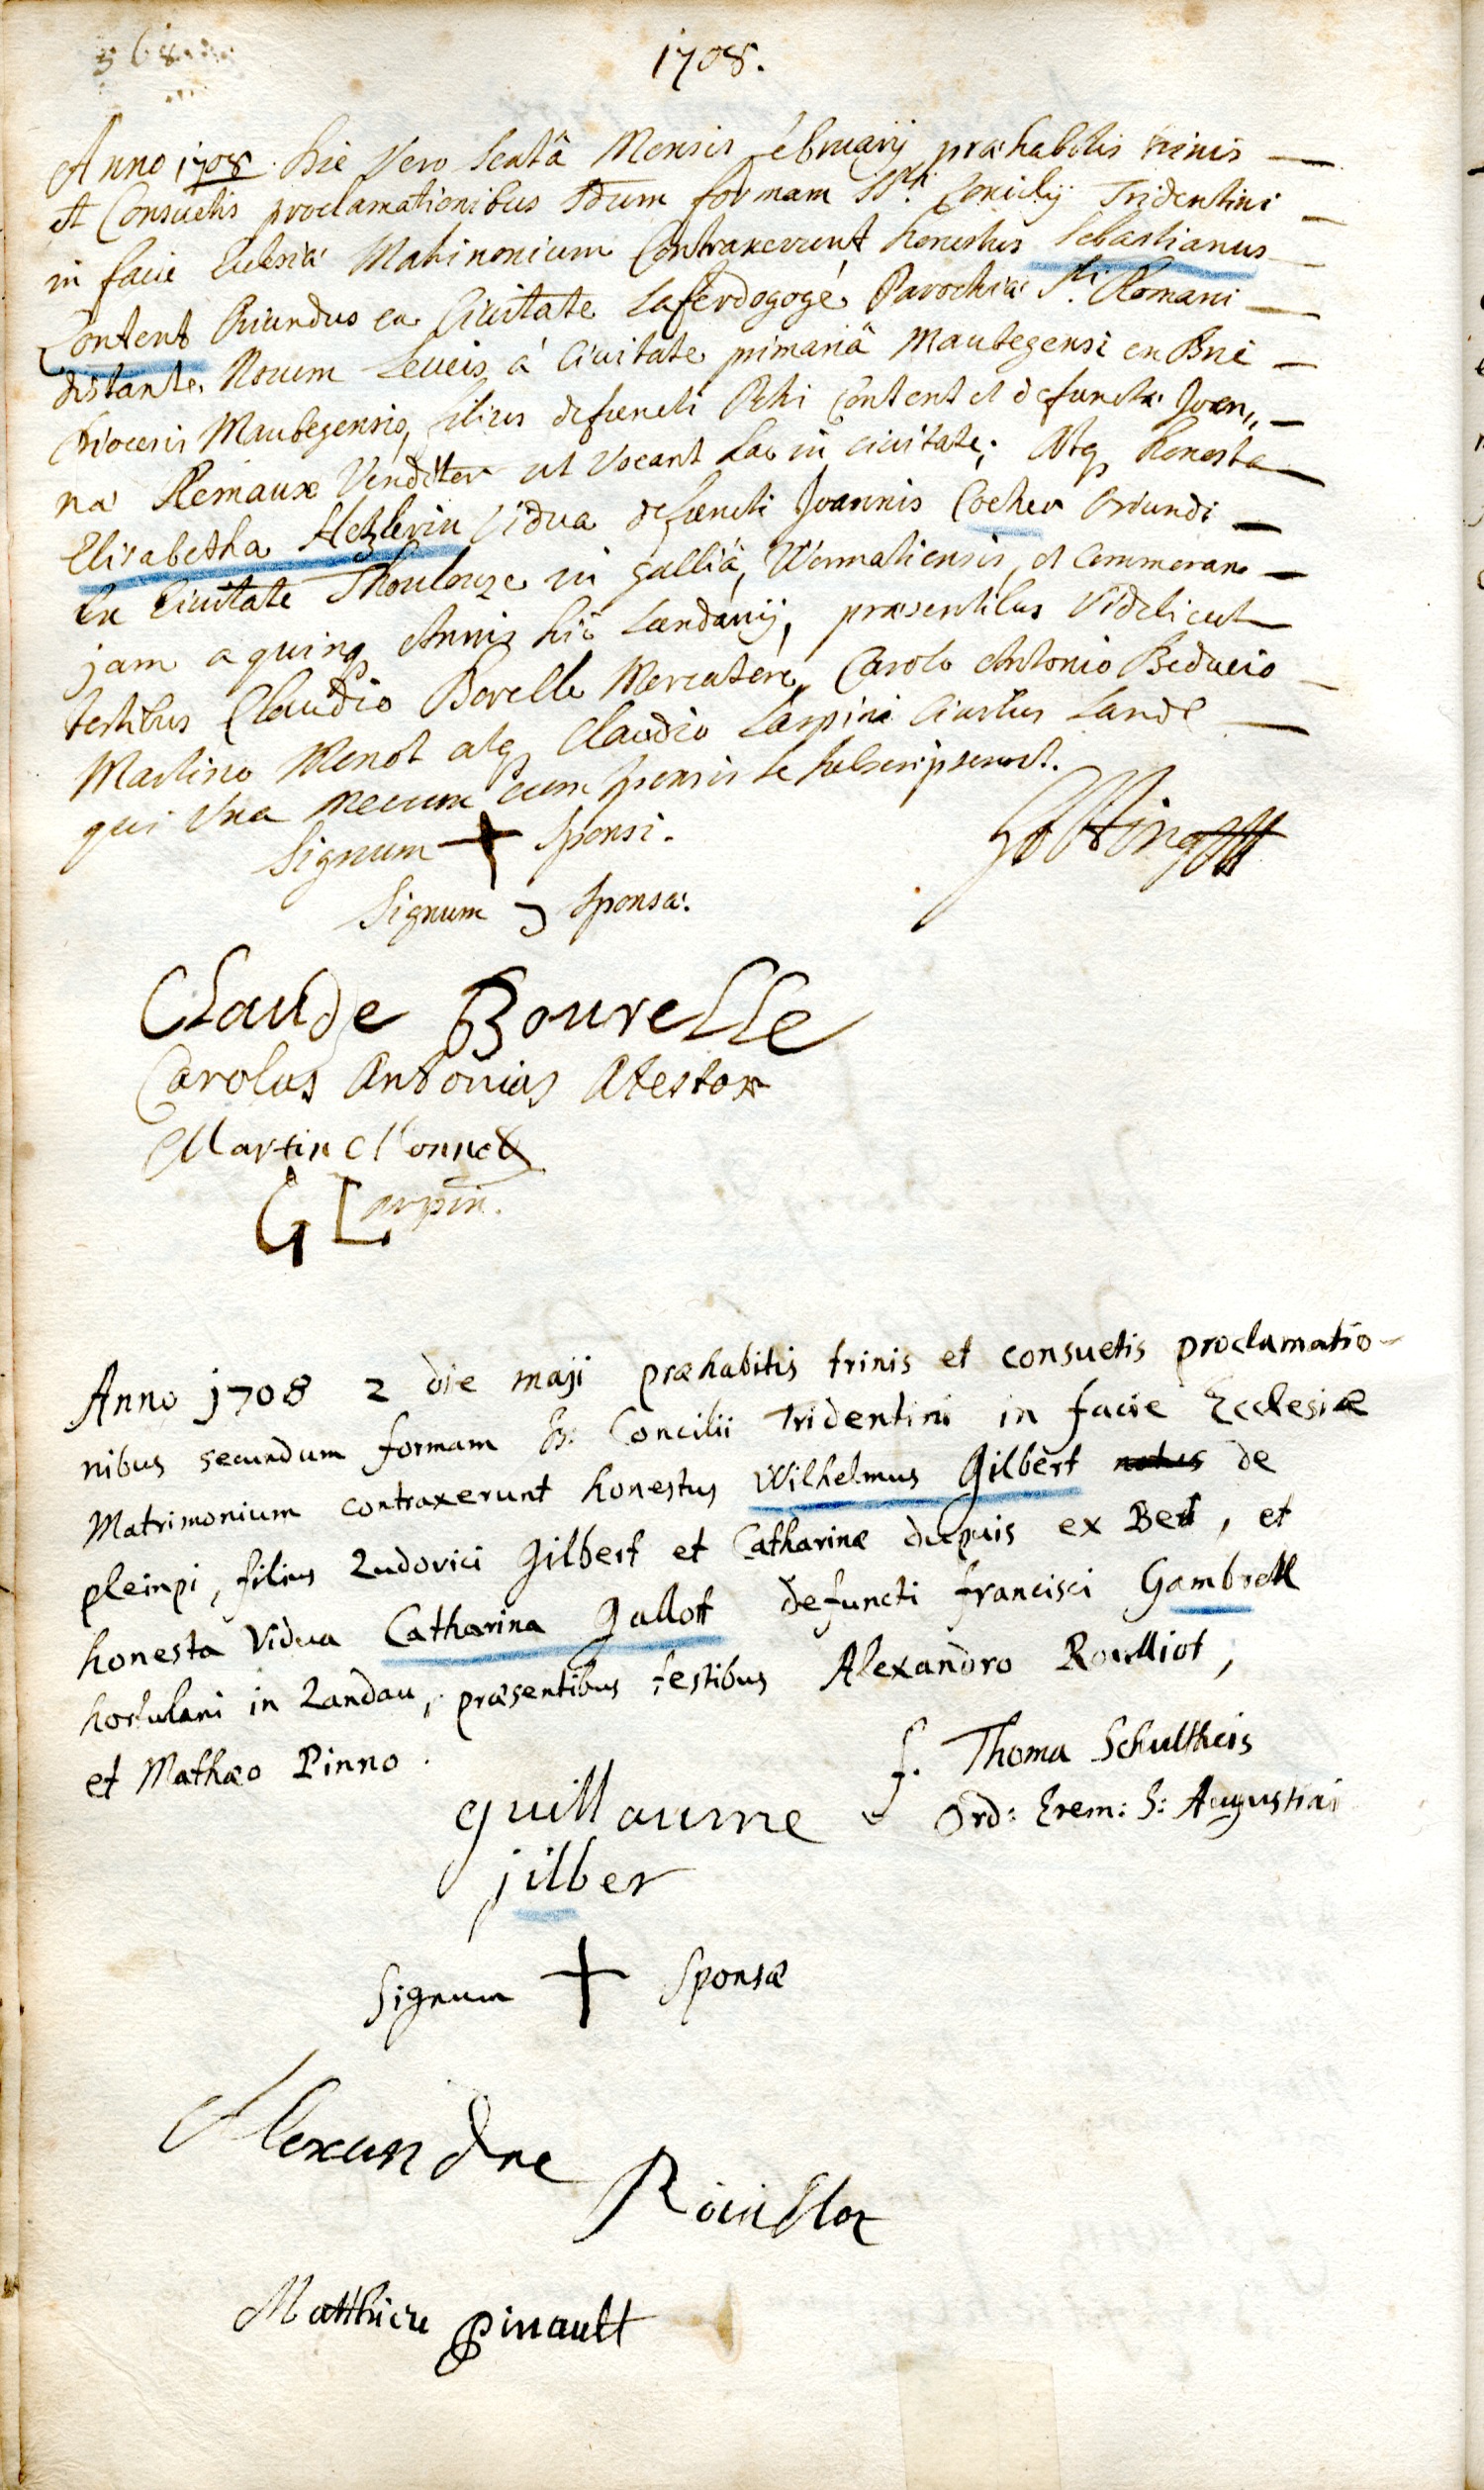 368
1708.
Anno 1708. Die Vero Sextâ Mensis Februarij præhabitis trinis
et Consuetis proclamationibus 2dum formam SSti. Concilij Tridentini
in facie Ecclesiæ Matrimonium Contraxerunt honestus Sebastianus
Content Oriundus ex Civitate Laferdogogé Parochiæ Sti. Romani
distante Novem Leucis á Civitate primariâ Maubegensi en Brie
Diocesis Maubegensis, filius defuncti Petri Content et defunctæ Joan„
næ Remaux Venditor ut Vocant Lac in civitate; Atq honesta
Elisabetha Hetzlerin Vidua defuncti Joannis Cocher Oriundi
Ex Civitate Thoulouze in galliâ, Wormatiensis, et Commorans
jam a quinq Annis hic Landavij, præsentibus Videlicet
testibus Claudio Borelle Mercatore, Carolo Antonio Bedueio
Martino Monot atq Claudio Larpin Civibus Land
qui Una mecum cum sponsis se subscripserunt.
Signum + Sponsi.
Signum Sponsæ.
Claude Bourelle
Carolus Antonius Atestor
Martin Monnot
G Larpin.
Anno 1708 2 die maji præhabitis trinis et consuetis proclamatio-
nibus secundum formam SS: Concilii Tridentini in facie Ecclesiæ
Matrimonium contraxerunt honestus Wilhelmus Gilbert natus de
pleinpi, filius Ludovici Gilbert et Catharinæ dupuis ex Bert, et
honesta Vidua Catharina Gallott defuncti francisci Gambrell
hortulani in Landau, præsentibus testibus Alexandro Roulliot,
et Mathæo Pinno.
f. Thoma Schultheis
Ord: Erem: S: Augustini
guillaume
jilber
Signum + Sponsæ
Alexandre
Roullot
Matthieu pinault